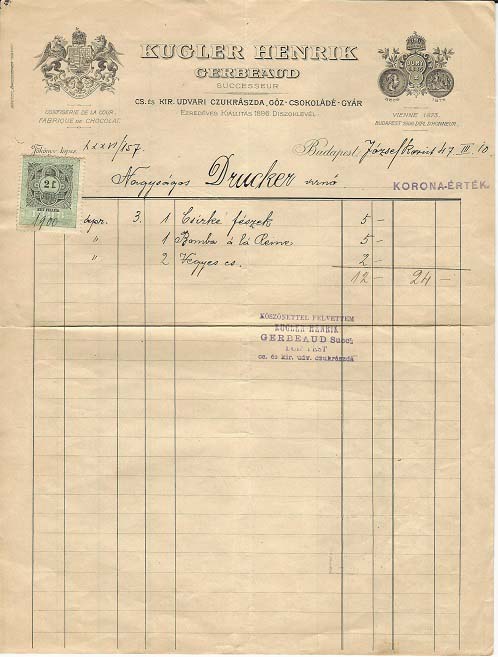 KUGLER HENRIK
GERBEAUD
SUCCESSEUR
CS. ÉS KIR. UDVARI CZUKRÁSZDA, GŐZ-CSOKOLÁDÉ-GYÁR
EZREDÉVES KIÁLLITÁS 1896 DISZOKLEVÉL.
CONFISERIE DE LA COUR.
FABRIQUE DE CHOCOLAT.
VIENNE 1873.
BUDAPEST DIPL. D'HONNEUR.
LXXVI/157
Budapest, József körút 47 III 10
Nagyságos Drucker urnő
KORONA-ÉRTÉK.
2 f
1900 apr. 3. 1 Csirke fészek 5 -
" 1 Bomba á lá Reine 5 -
" 2 Vegyes cs. 2 -
12 - 24 -
KÖSZÖNETTEL FELVETTEM
KUGLER HENRIK
GERBEAUD Succ.
BUDAPEST
cs. és kir. udv. czukrászda